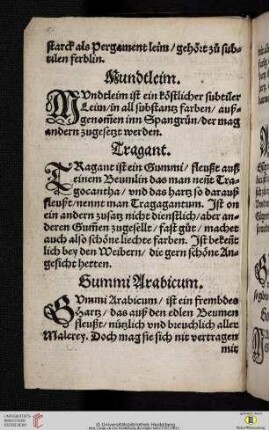 starck als Pergament leim / gehört zů sub-
tilen ferblin.
Mundtleim.
MVndtleim ist ein köstlicher subtiler
Leim / in all substantz farben / auß-
genom̃en inn Spangrün / der mag
andern zugesetzt werden.
Tragant.
TRagant ist ein Gummi / fleußt auß
einem Beumlin das man neñt Tra-
gocantha / vnd das hartz so darauß
fleußt / nennt man Tragagantum. Ist on
ein andern zusatz nicht dienstlich / aber an-
deren Gum̃en zugesellt / fast gůt / machet
auch also schöne liechte farben. Ist bekeñt
lich bey den Weibern / die gern schöne An-
gesicht hetten.
Gummi Arabicum.
GVmmi Arabicum / ist ein frembdes
Hartz / das auß den edlen Beumen
fleußt / nützlich vnd breuchlich aller
Malerey. Doch mag sie sich nit vertragen
mit
© Universitätsbibliothek Heidelberg